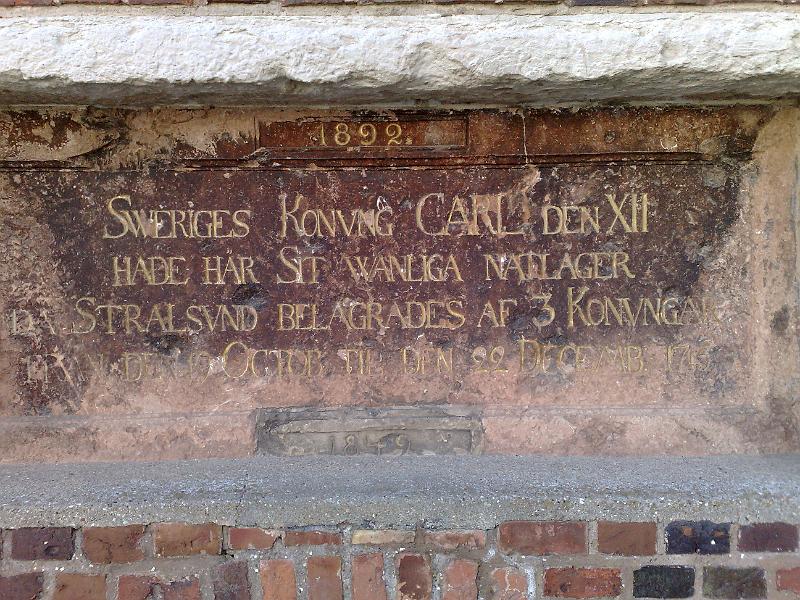 1892.
SWERIGES KONVNG CARL DEN XII
HADE HÄR SIT WANLIGA NATLAGER
DA STRALSVND BELAGRADES AF 3 KONVNGAR
DEN 19 OCTOB. TIL DEN 22 DECEMB. 1715
1849